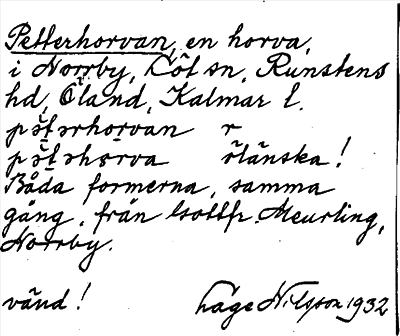 Petterhorvan, en horva,
i Norrby, Löt sn, Runstens
hd, Öland, Kalmar l.
pätərhorvan r
pätəhorva ölänska!
Båda formerna, samma
gång, från Gottfr. Meurling,
Norrby.
vänd! Låge Nilsson 1932